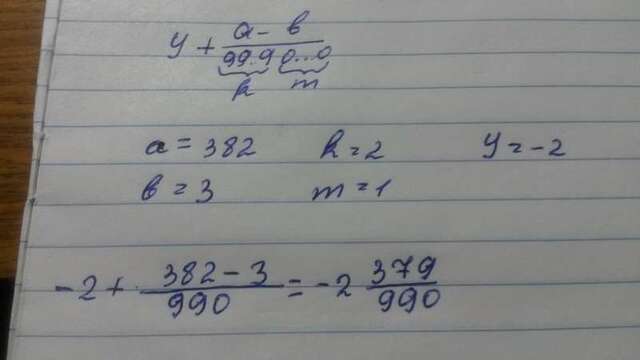 y + a - в
99..9 0...0
k m
a = 382 k = 2 y = -2
в = 3 m = 1
-2 + 382 - 3 / 990 = -2 379 / 990